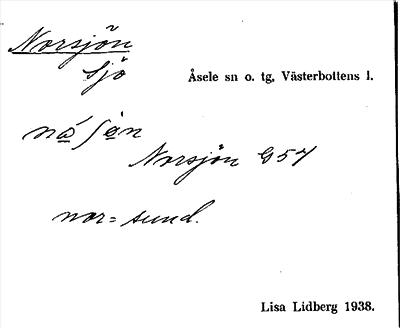 Norsjön
sjö
Åsele sn o. tg, Västerbottens l.
nåʃøn
Norsjön G57
nor = sund.
Lisa Lidberg 1938.